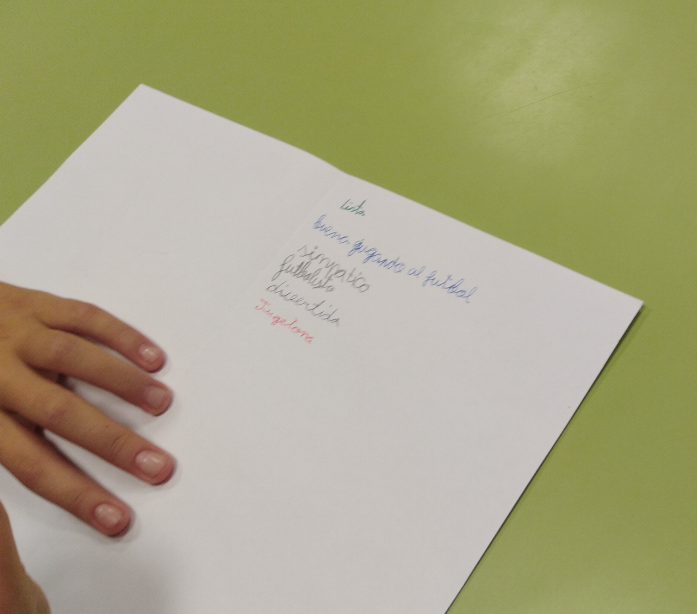 Lista
buena jugando al futbol
simpatico
futbolista
dicertida
Jugetona